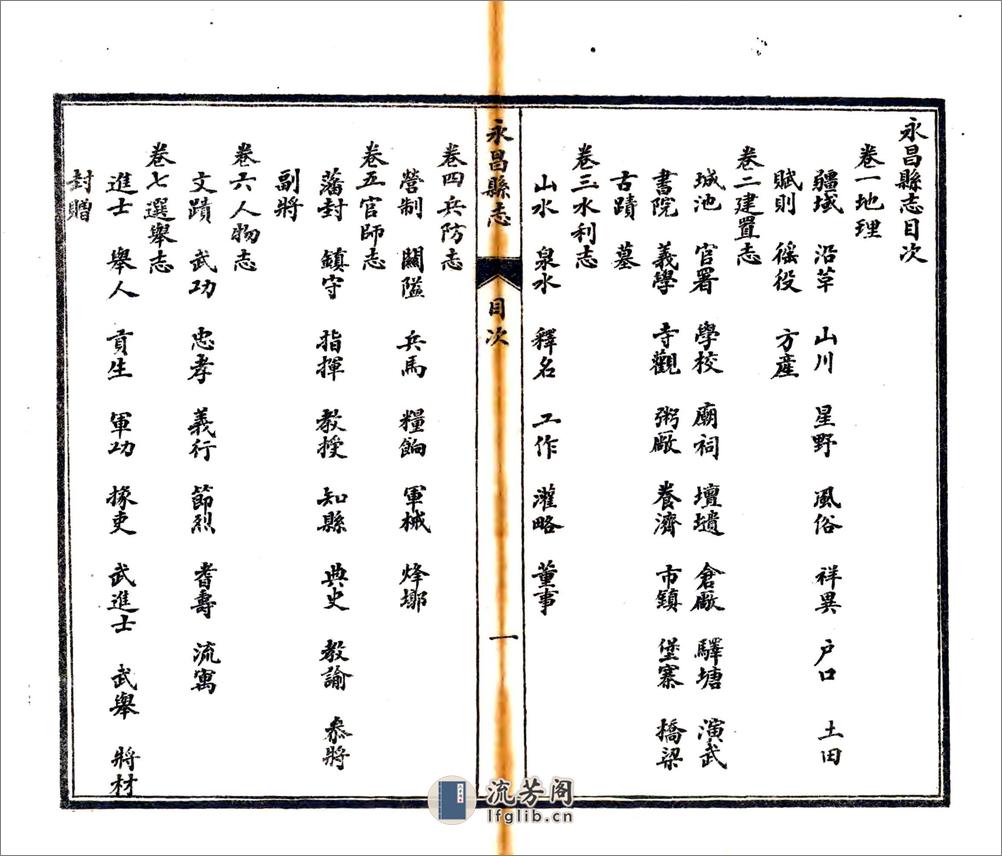 永昌縣志目次
卷一地理
疆域 沿革 山川 星野 風俗 祥異 户口 土田
賦則 徭役 方産
卷二建置志
城池 官署 學校 廟祠 壇壝 倉廒 驛塘 演武
書院 義學 寺觀 粥廠 養濟 市鎮 堡寨 橋梁
古蹟 墓
卷三水利志
山水 泉水 釋名 工作 灌略 董事
永昌縣志 目次 一
卷四兵防志
營制 關隘 兵馬 糧餉 軍械 烽墩
卷五官師志
藩封 鎮守 指揮 教授 知縣 典史 教諭 叅將
副將
卷六人物志
文蹟 武功 忠孝 義行 節烈 耆壽 流寓
卷七選舉志
進士 舉人 貢生 軍功 掾吏 武進士 武舉 將材
封贈
流芳阁
lfglib.cn